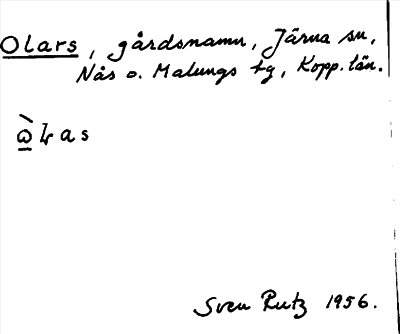 Olars, gårdsnamn, Järna sn,
Nås o. Malungs tg, Kopp. län.
Sven Rutz 1956.